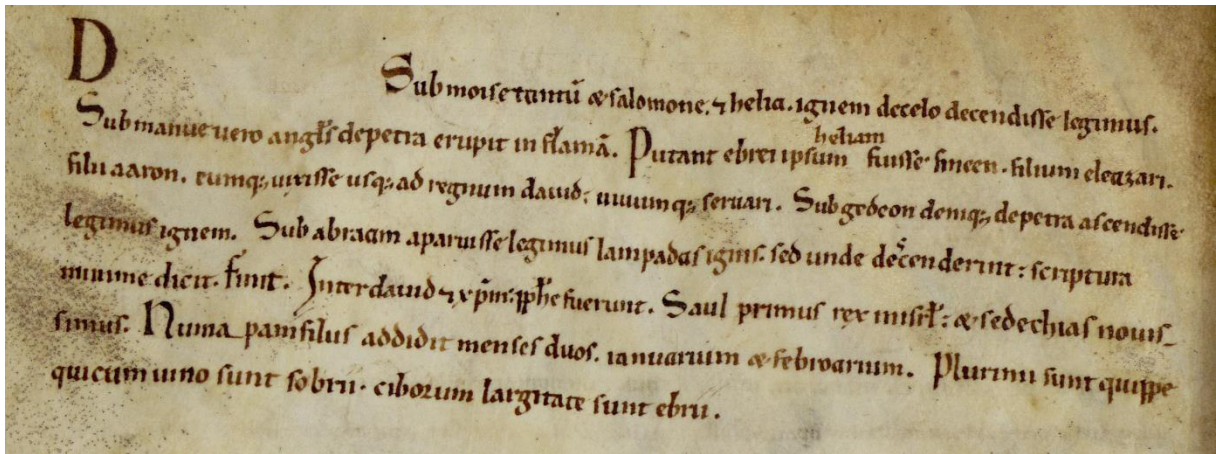 D
Sub moise tantū & salomone. ⁊ helia. ignem decelo decendisse legimus.
Sub manue vero angłs depetra erupit in flamā. Putant ebrei ipsum heliam fuisse fineen. filium eleazari.
filii aaron. eumq; vixisse usq; ad regnum david; vivumq; servari. Sub gedeon deniq; depetra ascendisse
legimus ignem. Sub abraam aparuisse legimus lampadas ignis. sed unde descenderint: scriptura
minime dicit. finit. Inter david ⁊ xp̄m: ꝓphe fuerunt. Saul primus rex in isrł: & sedechias novis-
simus. Numa pamfilus addidit menses duos. ianuarium & febroarium. Plurimi sunt quippe
qui cum uino sunt sobrii. ciborum largitate sunt ebrii.